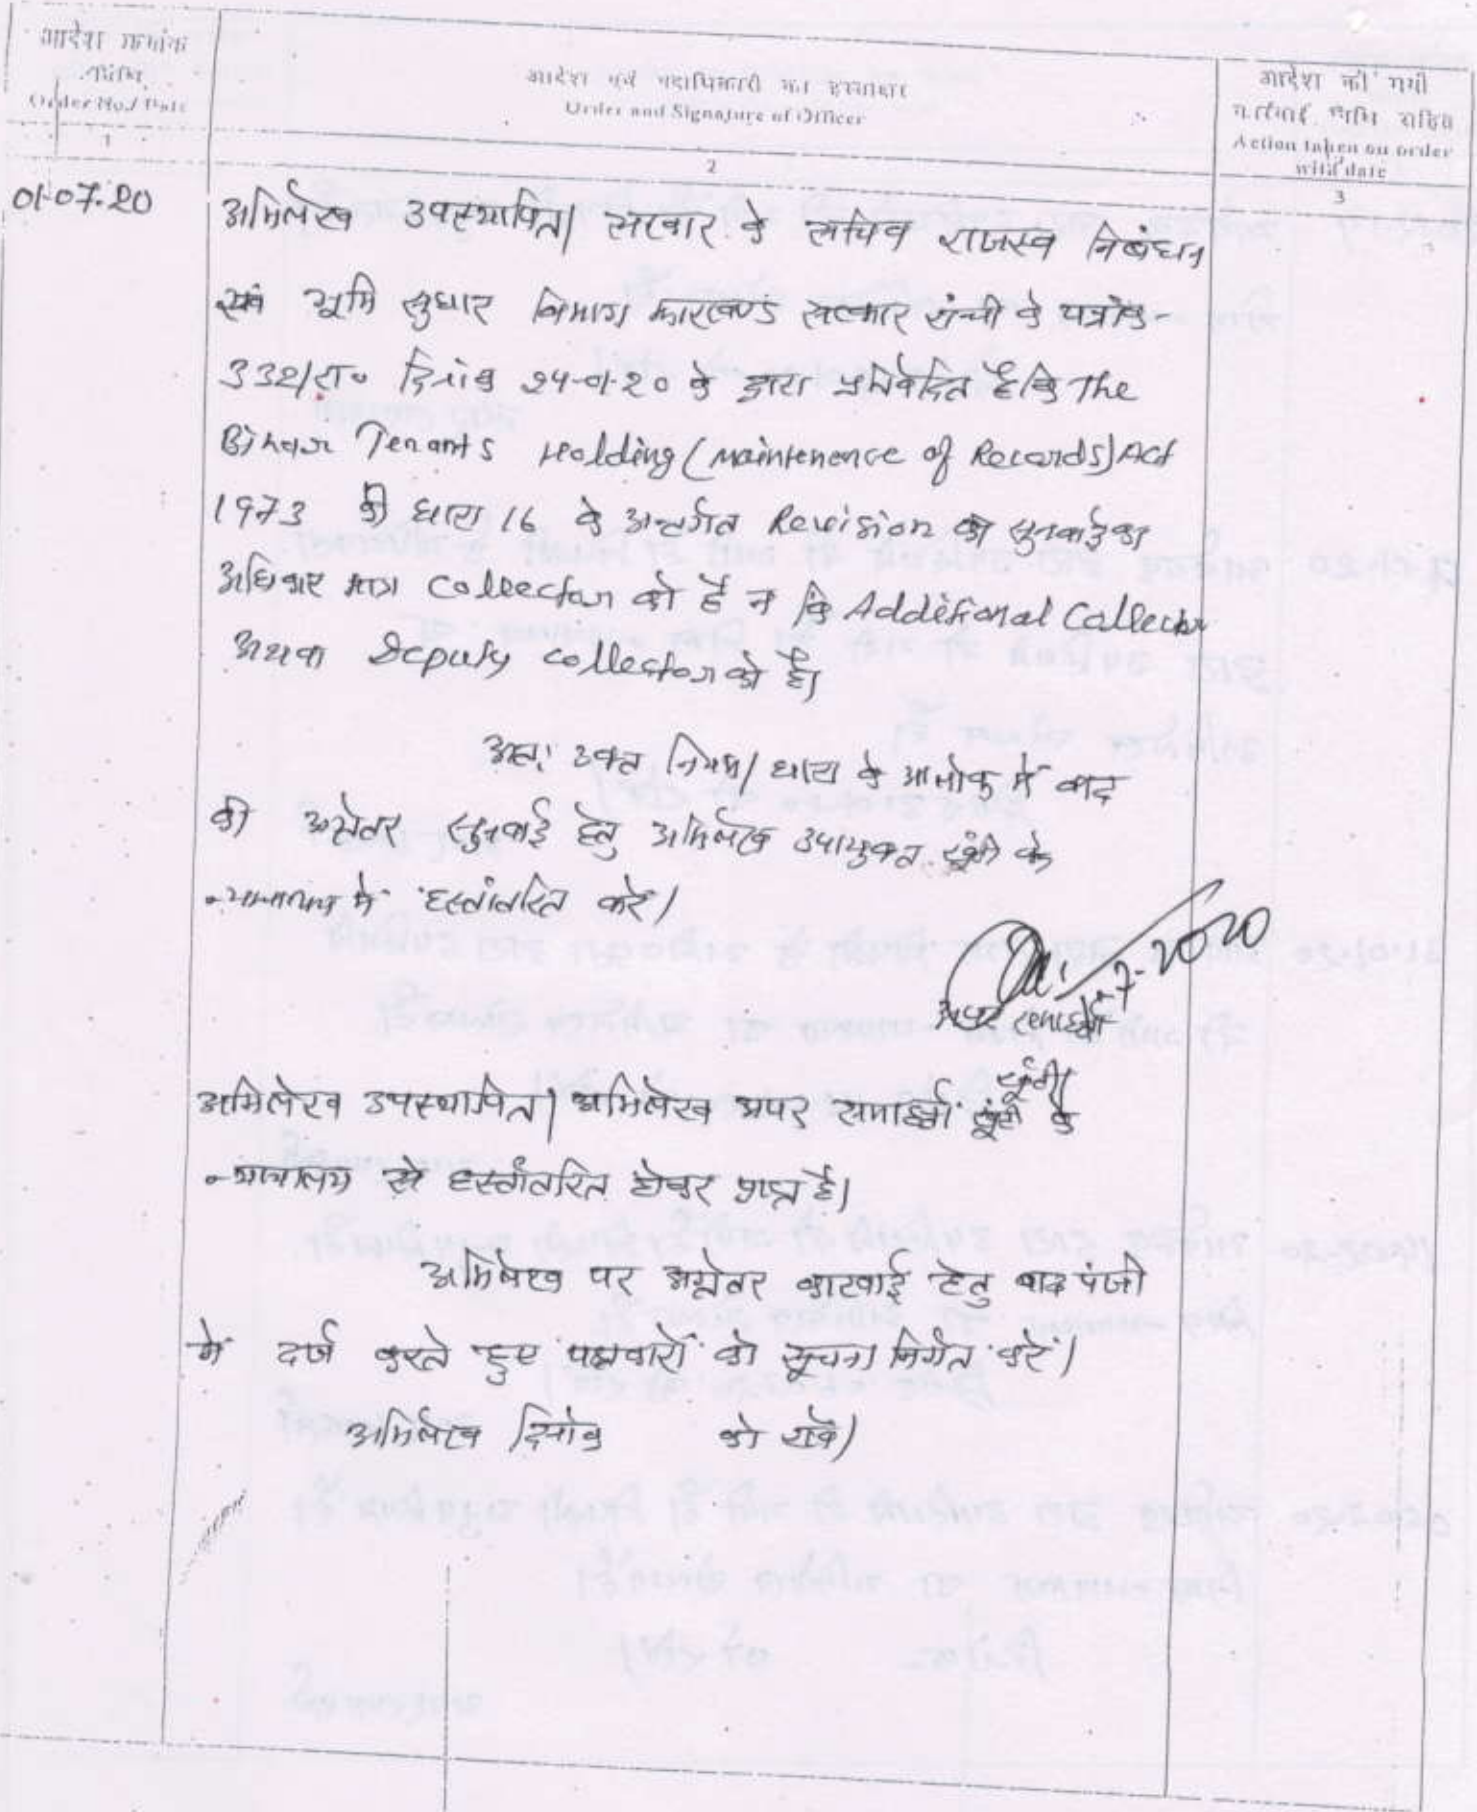 आदेश क्रमांक
तिथि
Order No./ Date
1
आदेश एवं पदाधिकारी का हस्ताक्षर
Order and Signature of Officer
2
आदेश की गयी
कार्रवाई तिथि सहित
Action taken on order
with date
3
01-07-20
अभिलेख उपस्थापित। सरकार के सचिव राजस्व निबंधन
एवं भूमि सुधार विभाग झारखण्ड सरकार रांची के पत्रांक-
332/रा० दिनांक 24-01-20 के द्वारा प्रतिवेदित है कि The
Bihar Tenants Holding (Maintenence of Records) Act
1973 की धारा 16 के अन्तर्गत Revision की सुनवाई का
अधिकार मात्र Collector को है न कि Additional Collector
अथवा Deputy Collector को है।
अतः उक्त नियम/धारा के आलोक में वाद
की अग्रेतर सुनवाई हेतु अभिलेख उपायुक्त खूंटी के
न्यायालय में हस्तांतरित करें।
-7-2020
अपर समाहर्ता
खूंटी।
अभिलेख उपस्थापित। अभिलेख अपर समाहर्ता खूंटी के
न्यायालय से हस्तांतरित होकर प्राप्त है।
अभिलेख पर अग्रेतर कारवाई हेतु वाद पंजी
में दर्ज करते हुए पक्षकारों को सूचना निर्गत करें।
अभिलेख दिनांक को रखें।